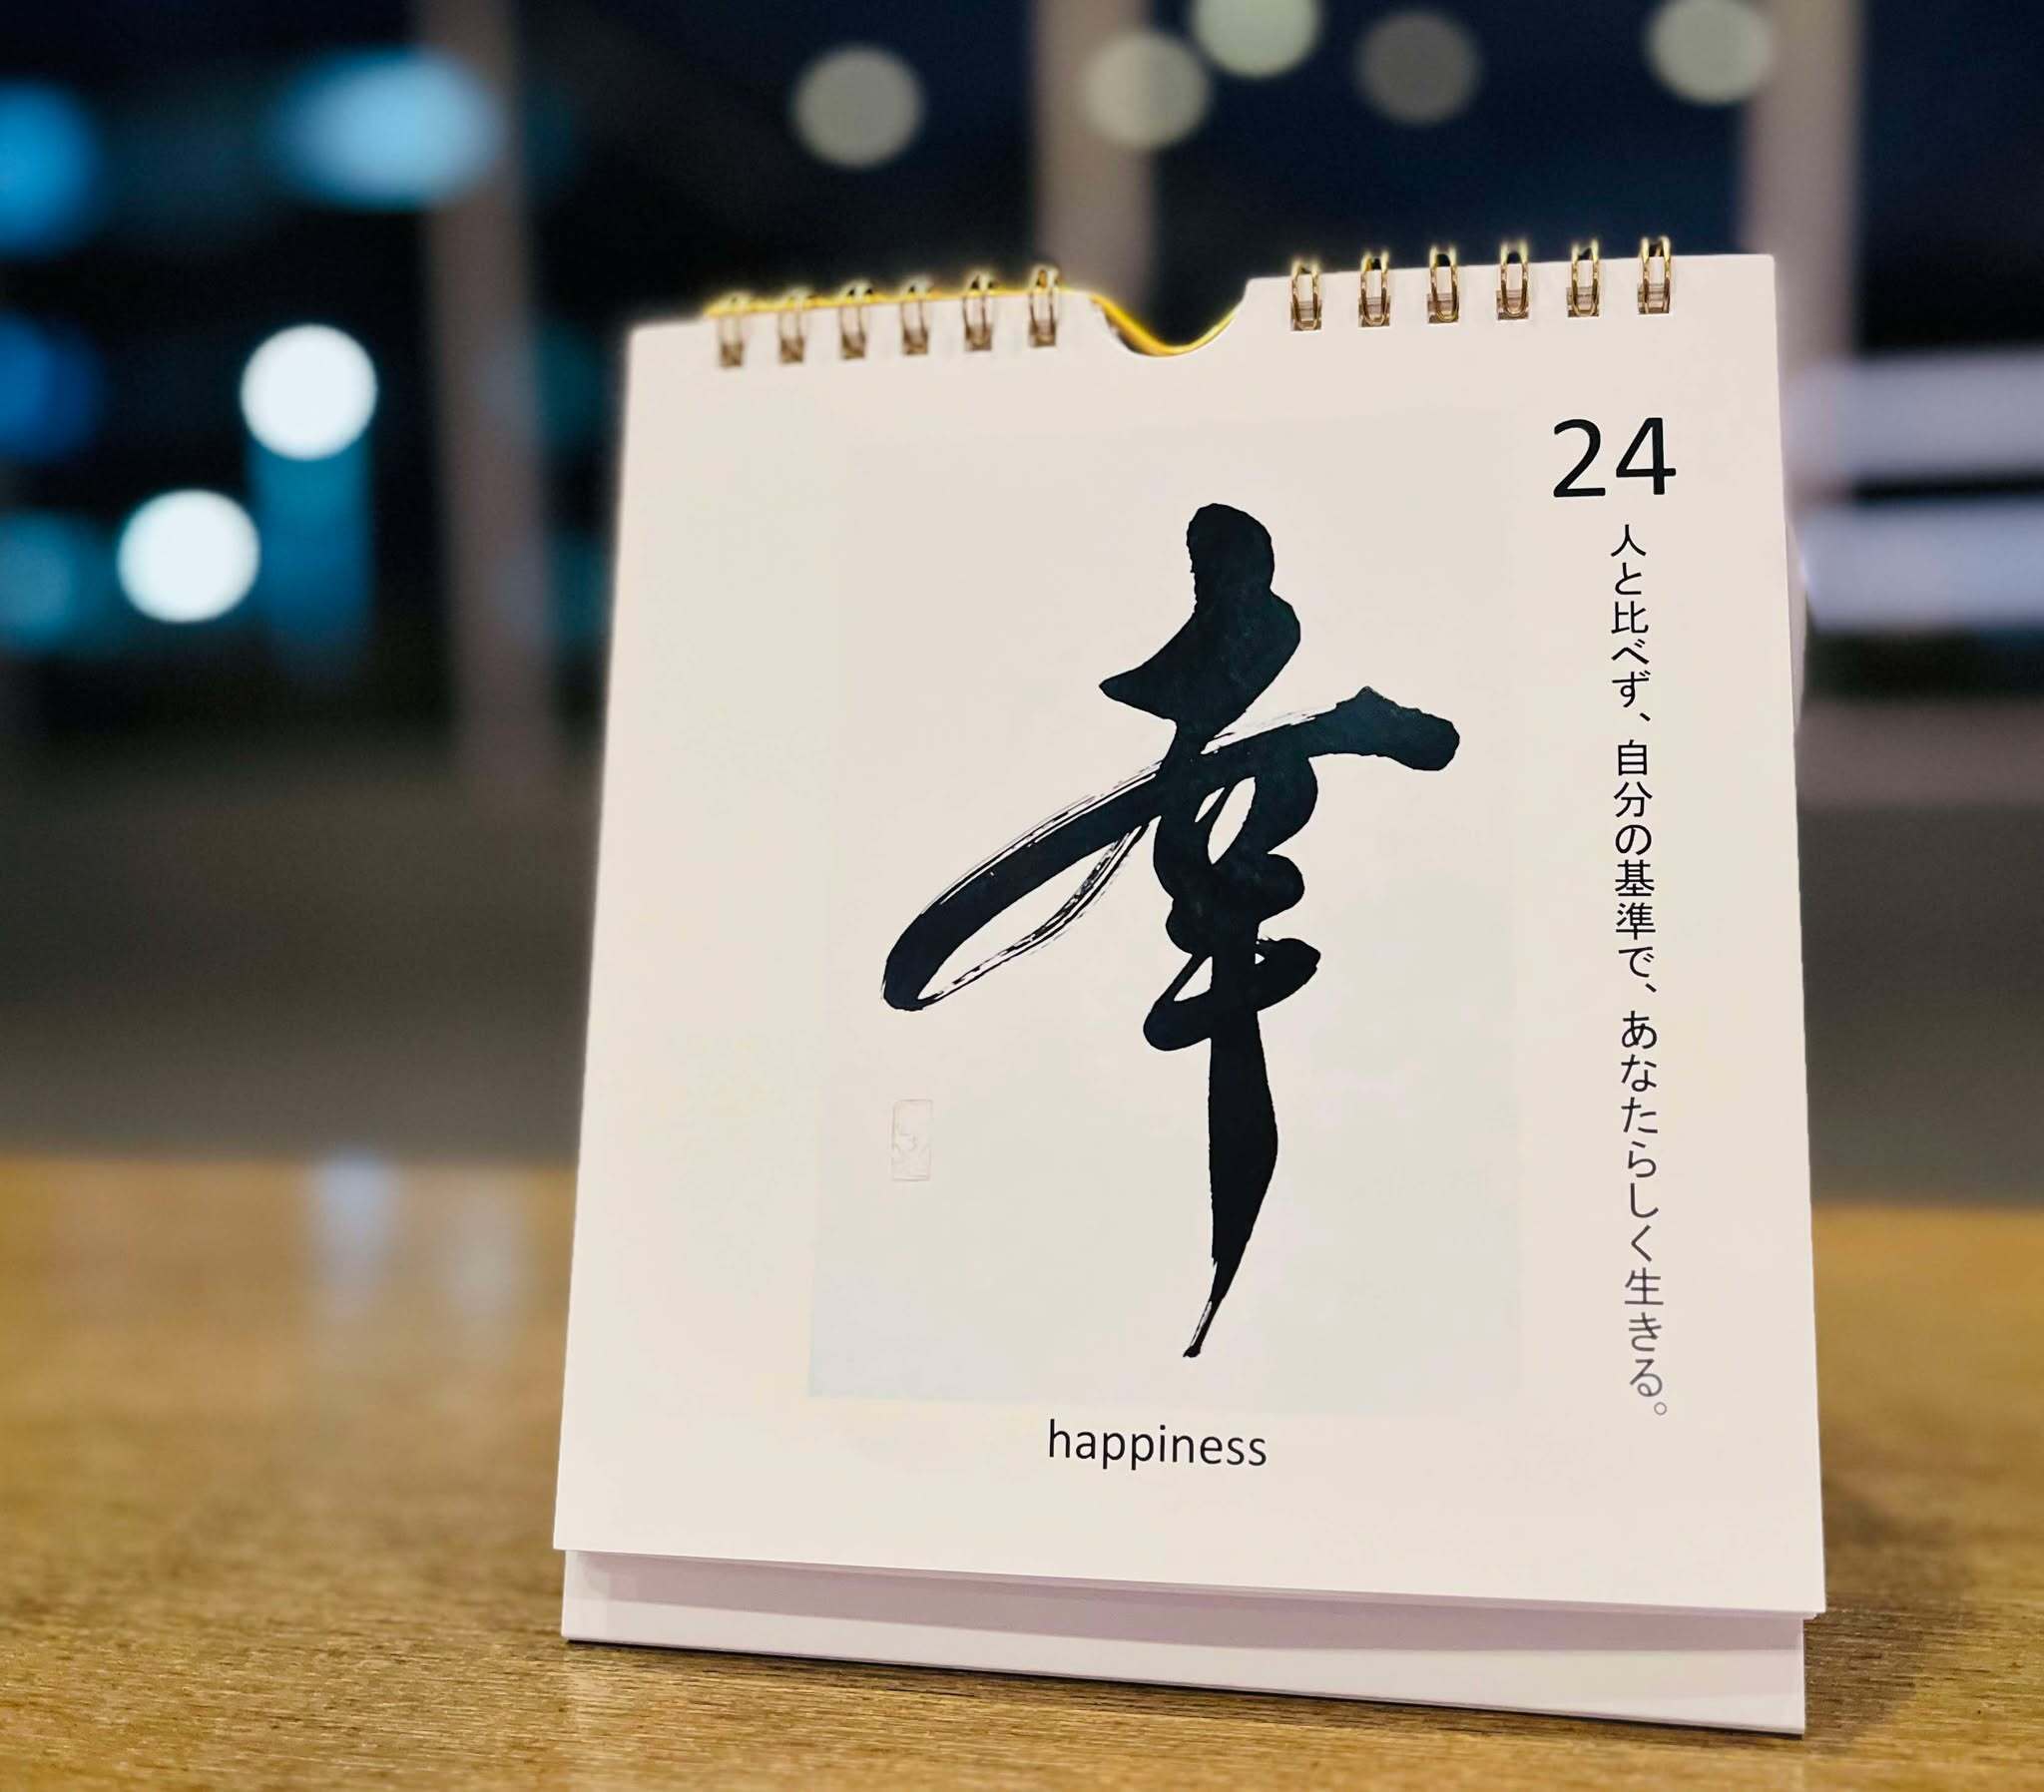 24
人と比べず、自分の基準で、あなたらしく生きる。
幸
happiness